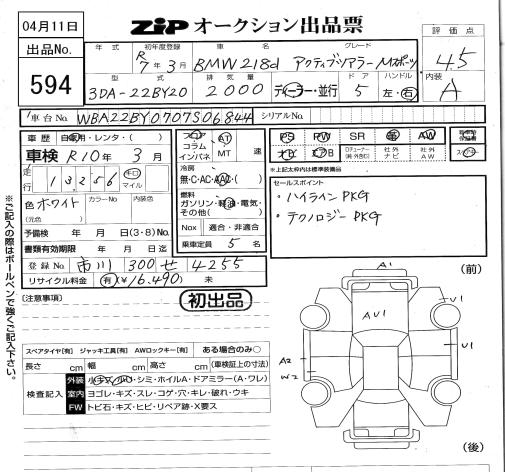 04月11日
ZIP オークション出品票
出品No.
594
年式 初年度登録 車名 グレード
R 7年3月 BMW218d アクティブツアラー Mスポーツ
型式 排気量 ドア ハンドル
3DA-22BY20 2000 ディーラー・並行 5 左・右
評価点
4.5
内装
A
車台No. WBA22BY0707S06844 シリアルNo.
車歴 自家用・レンタ・( )
車検 R10年 3月
走行 13256 キロ マイル
色 ホワイト (元色) カラーNo. 内装色
予備検 年 月 日(3・8)No.
書類有効期限 年 月 日迄
登録No. 市川 300 せ 4255
リサイクル料金 有(¥16,490) 未
フロア コラム インパネ AT MT 速
冷房
無・C・AC・AAC・( )
燃料
ガソリン・軽油・電気・その他( )
Nox 適合・非適合
乗車定員 5 名
PS PW SR 革 AW
ナビ エアB 社外ナビ 社外AW
※上記太枠内は標準装備品
セールスポイント
・ハイラインPKG
・テクノロジーPKG
初出品
(注意事項)
※ご記入の際はボールペンで強くご記入下さい。
スペアタイヤ[有] ジャッキ工具[有] AWロックキー[有] ある場合のみ○
長さ cm 幅 cm 高さ cm (車検証上の寸法)
検査記入
外装 小キズ・凹・シミ・ホイルA・ドアミラー(A・ワレ)
室内 ヨゴレ・キズ・スレ・コゲ・穴・キレ・破れ・ウキ
FW トビ石・キズ・ヒビ・リペア跡・X要ス
(前)
A1
U1
AU1
U1
A2
W2
(後)